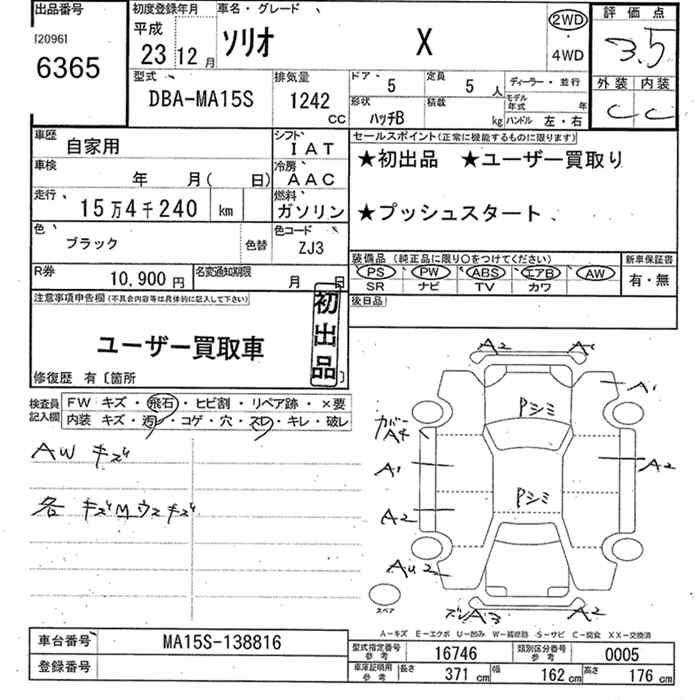 出品番号
[2096]
6365
初度登録年月
平成
23年12月
車名・グレード
ソリオ X
2WD
・
4WD
評価点
3.5
外装 内装
C C
型式
DBA-MA15S
排気量
1242
CC
ドア 5
定員 5人
ディーラー・並行
形状 ハッチB
積載 kg
モデル年式 年
ハンドル 左・右
車歴 自家用
シフト IAT
車検 年 月( 日)
冷房 AAC
走行 15万4千240 km
燃料 ガソリン
色 ブラック 色替
色コード ZJ3
R券 10,900円
名変通知期限 月 日
セールスポイント(正常に機能するものに限ります)
★初出品 ★ユーザー買取り
★プッシュスタート
装備品(純正品に限り○をつけてください)
PS PW ABS エアB AW
SR ナビ TV カワ
新車保証書
有・無
後日品
注意事項申告欄(不具合内容等は具体的に記入して下さい)
初出品
ユーザー買取車
修復歴 有〔箇所 〕
検査員記入欄
FW キズ・飛石・ヒビ割・リペア跡・×要
内装 キズ・汚レ・コゲ・穴・スレ・キレ・破レ
AW キズ
各 キズMウスキズ
A2 A1
A1
Pシミ
カバーA4
A1
A2
A2
Pシミ
AU2
スペア
ズレA3 A2
A-キズ E-エクボ U-凹み W-補修跡 S-サビ C-腐食 XX-交換済
車台番号 MA15S-138816
登録番号
型式指定番号参考 16746
類別区分番号参考 0005
車庫証明用参考 長さ 371cm 幅 162cm 高さ 176cm